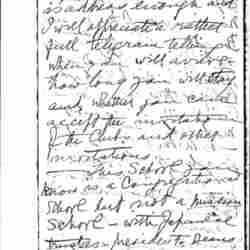 is address enough and
I will appreciate a rather
full telegram telling
when you will arrive
how long you will stay
and whether you can
accept the invitation
of the Club and other
invitations.
This School is
known as a Congregational
School but not a mission
School – with Japanese
trustees – president & Deans